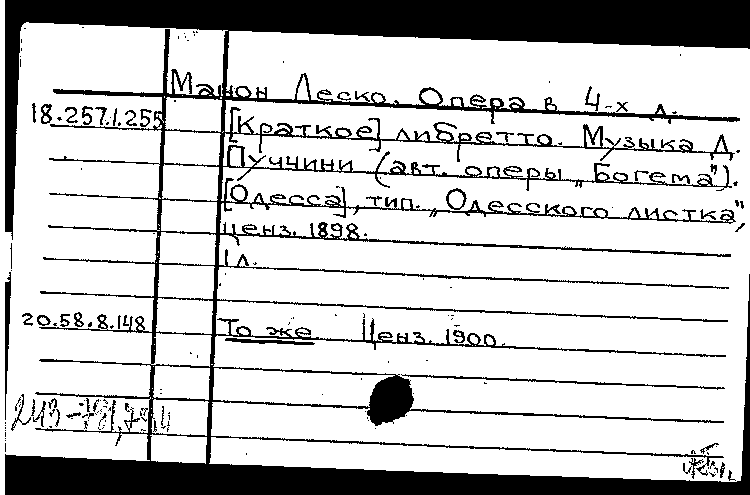 Манон Леско. Опера в 4-х д.
18.257.1.255 [Краткое] либретто. Музыка Д.
Пуччини (авт. оперы „Богема").
[Одесса], тип. „Одесского листка",
ценз. 1898.
1 л.
20.58.8.148 То же Ценз. 1900.